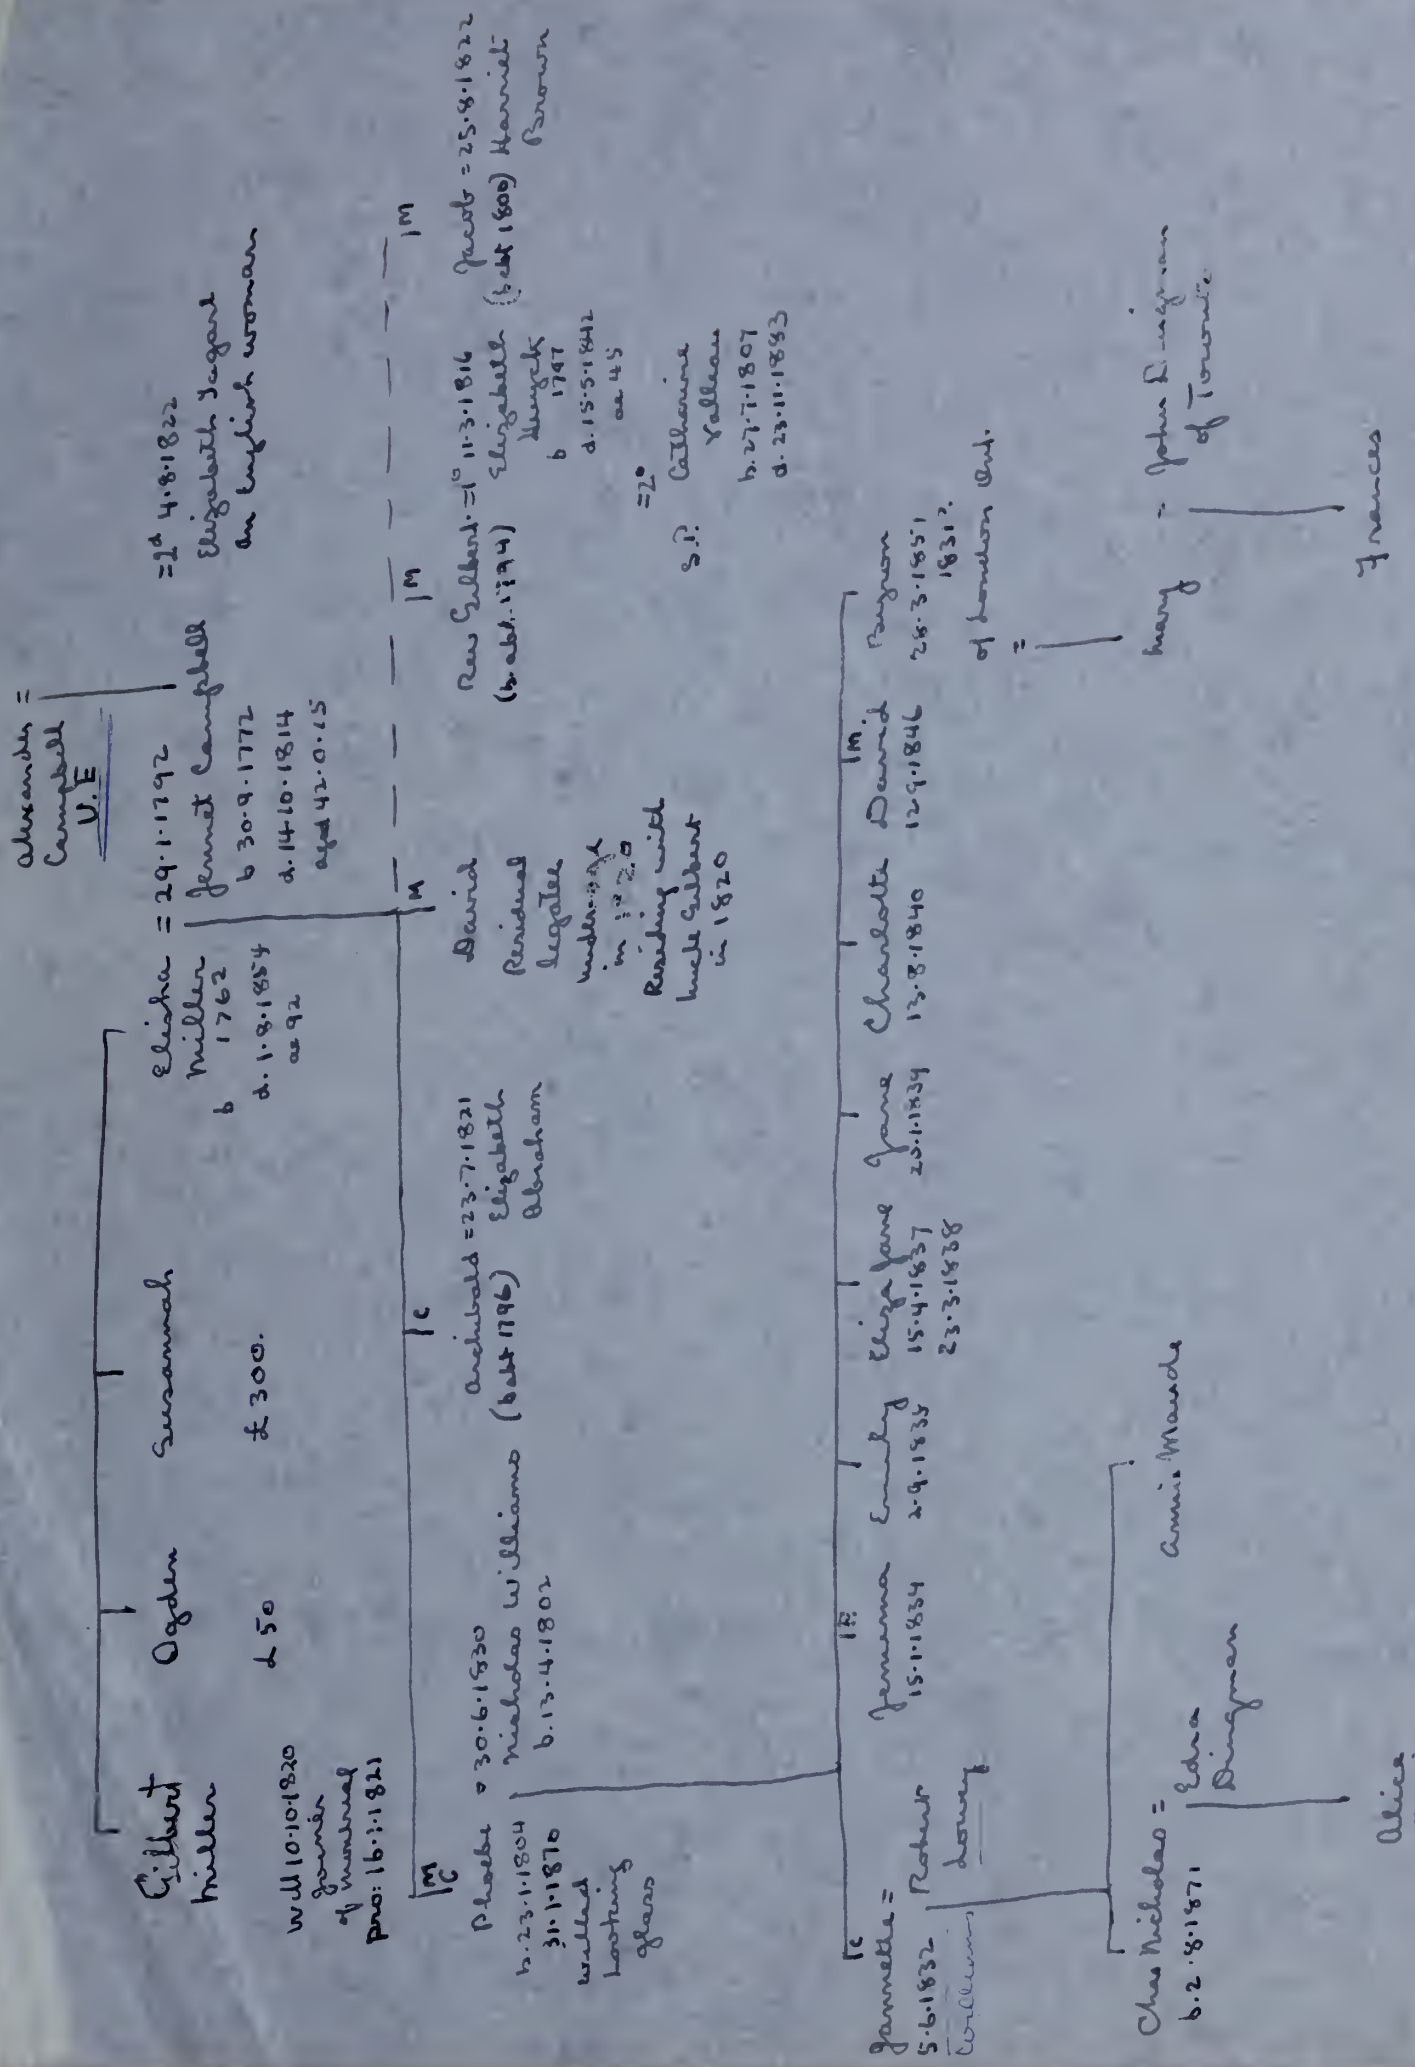 Alexander =
Campbell
U.E
Gilbert
Miller
Will 10.10.1820
Joiner
of Montreal
pro: 16.1.1821
Ogden
£50
Susannah
£300.
Elisha = 29.1.1792
Miller
b 1762
d. 1.8.1854
ae 92
Jennet Campbell
b 30.9.1772
d. 14.10.1814
aged 42.0.15
=2d 4.8.1822
Elizabeth
an English woman
M
C
C
M
M
M
Phoebe = 30.6.1830
b. 23.1.1804
31.1.1870
willed
looking
glass
Nicholas Williams
b. 13.4.1802
Archibald = 23.7.1821
(b abt 1796) Elizabeth
Abraham
David
Residual
legatee
under age
in 1820
Residing with
Uncle Gilbert
in 1820
Rev Gilbert =1° 11.3.1816
(b. abt. 1794) Elizabeth
Huyck
b 1797
d. 15.5.1842
ae 45
=2°
S.P. Catharine
Valleau
b. 27.7.1807
d. 23.11.1883
Jacob = 25.8.1822
(b abt 1800) Harriet
Brown
C
E
M.
Jannette =
5.6.1832
Robert
Lowey
Jemima
15.1.1834
Emily
2.9.1835
Eliza Jane
15.4.1837
23.3.1838
Jane
20.1.1839
Charlotte
13.8.1840
David
12.9.1846
Byron
28.3.1851
1831?
of London Ont.
=
Mary = John Dingman
of Toronto
Frances
Chas Nicholas =
b. 2.8.1871
Edna
Dingman
Annie Maude
Alice